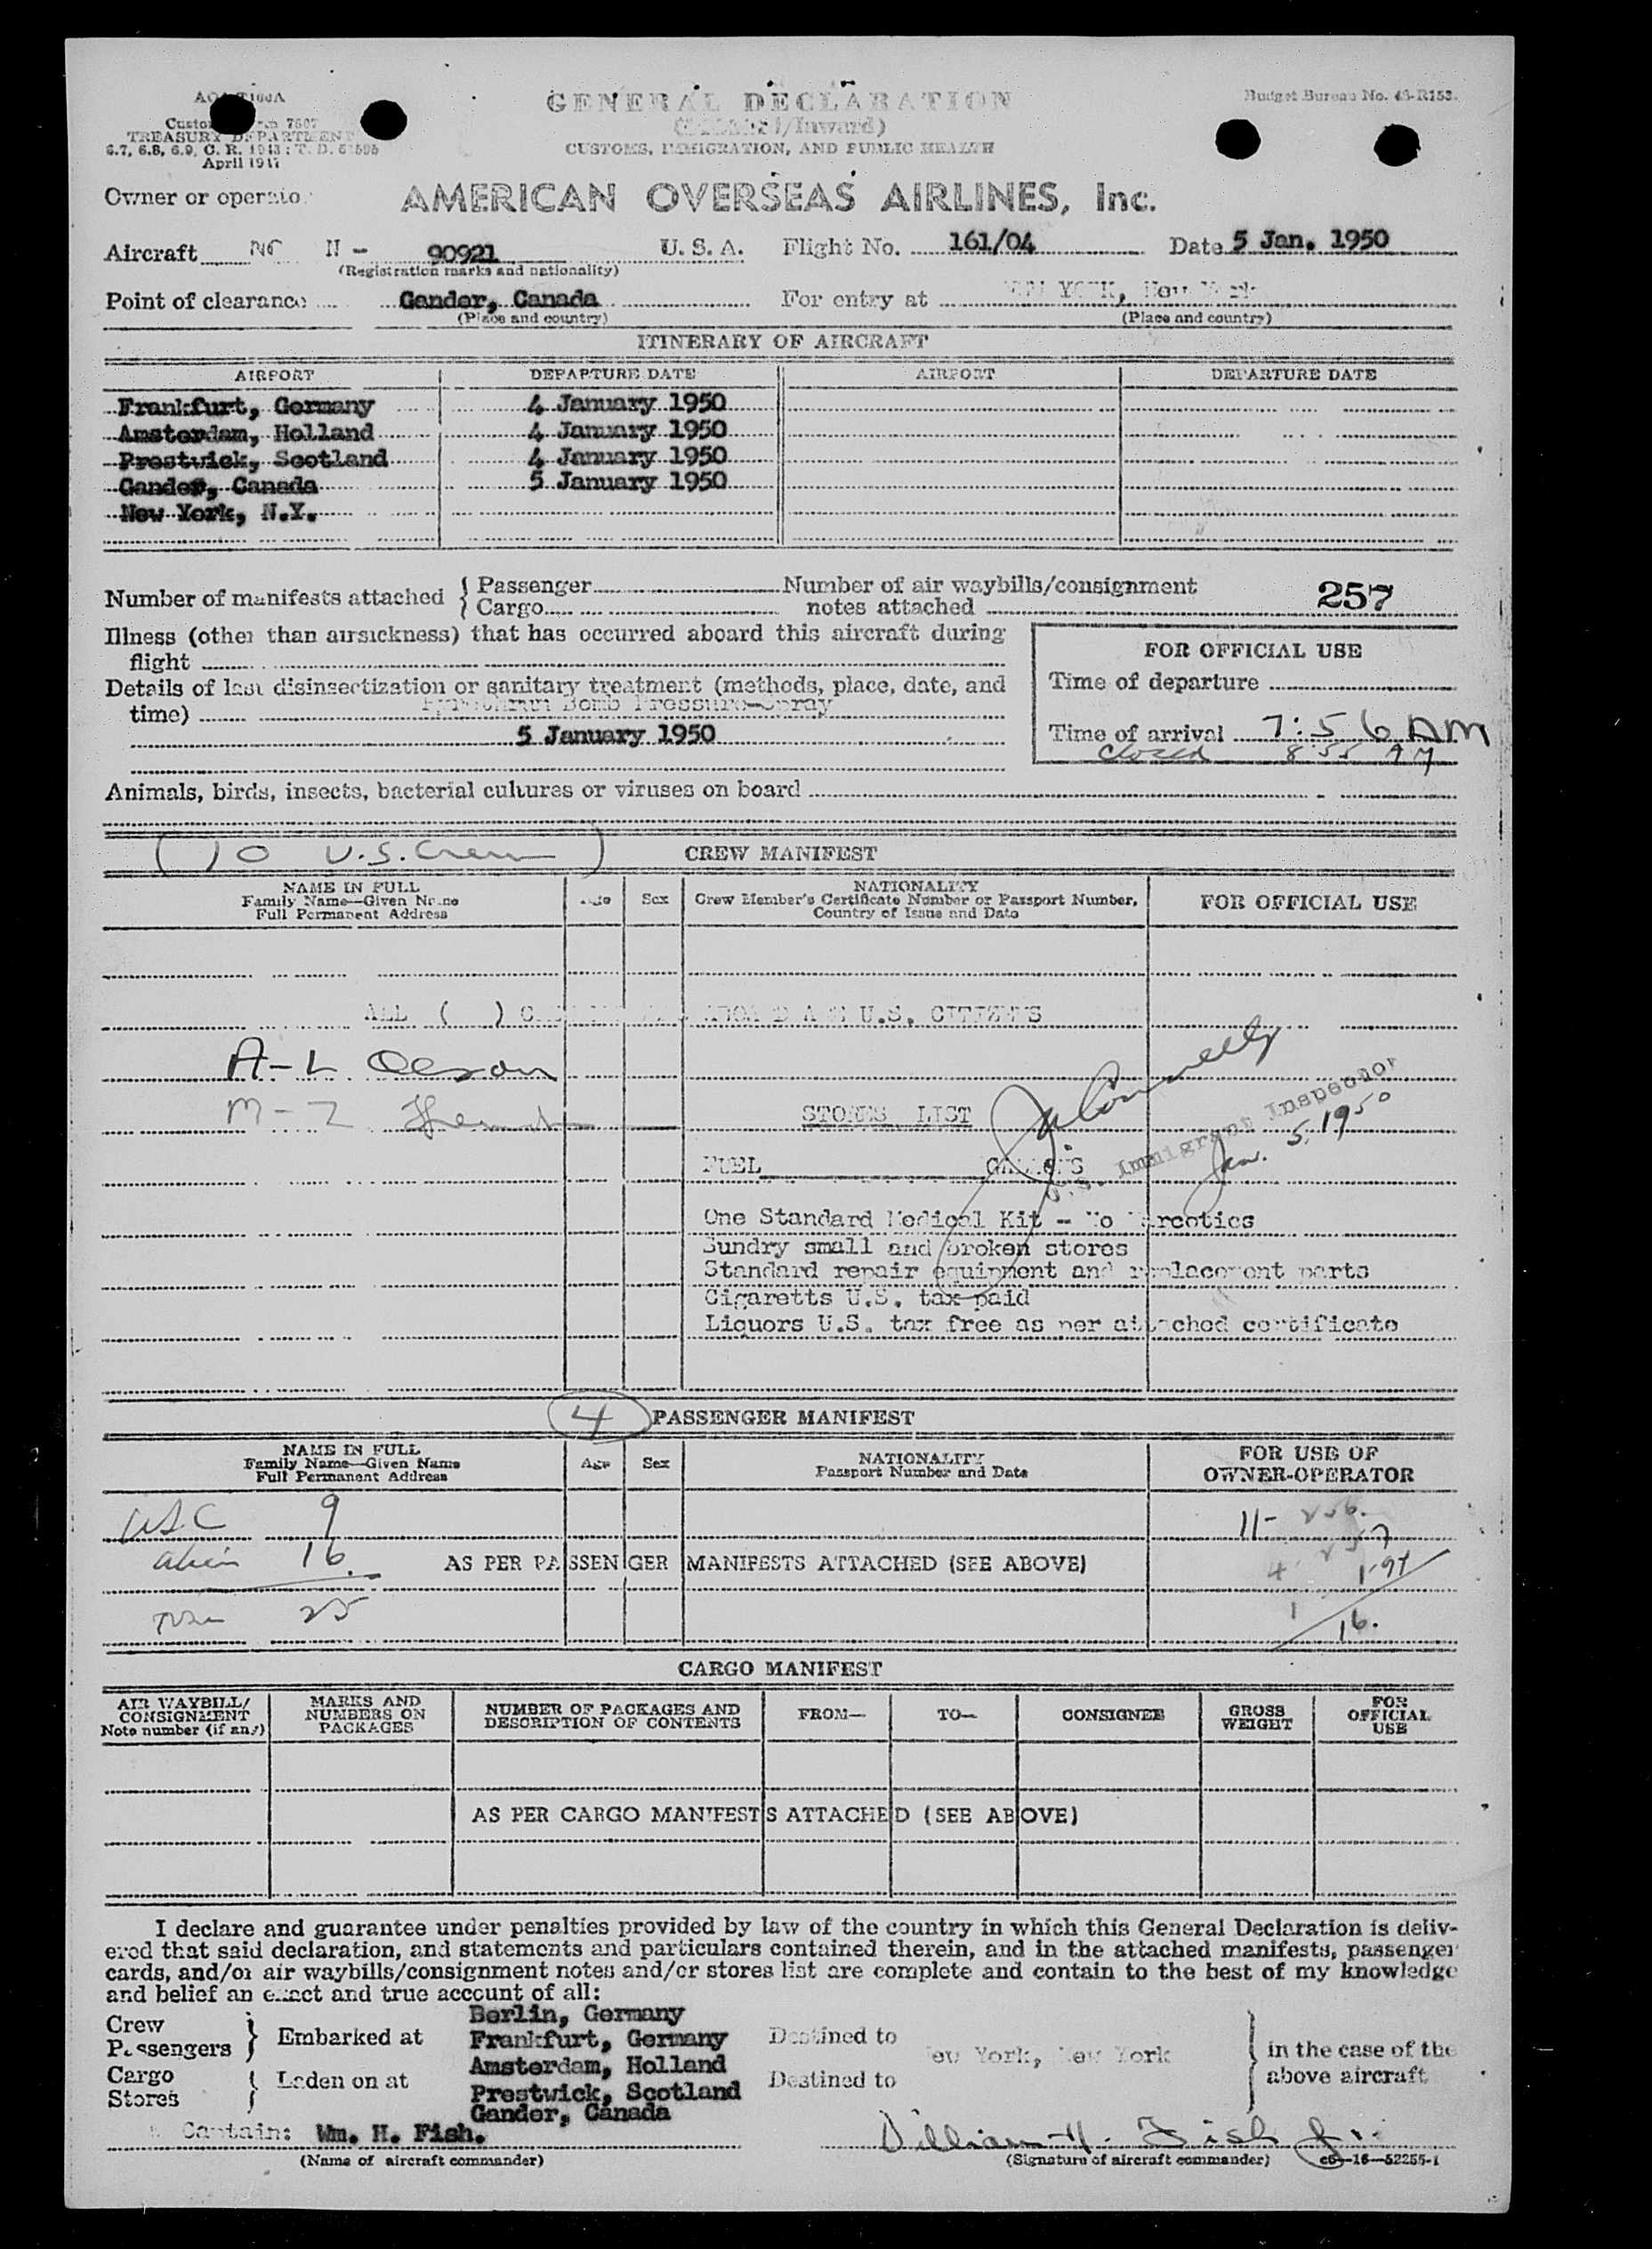 GENERAL DECLARATION
Budget Bureau No.
TREASURY DEPARTMENT
April 1947
CUSTOMS, IMMIGRATION, AND PUBLIC HEALTH
Owner or operator AMERICAN OVERSEAS AIRLINES, Inc.
Aircraft NC N- 90921 U. S. A. Flight No. 161/04 Date 5 Jan. 1950
(Registration marks and nationality)
Point of clearance Gander, Canada For entry at NEW YORK, New York
(Place and country) (Place and country)
ITINERARY OF AIRCRAFT
AIRPORT DEPARTURE DATE AIRPORT DEPARTURE DATE
Frankfurt, Germany 4 January 1950
Amsterdam, Holland 4 January 1950
Prestwick, Scotland 4 January 1950
Gander, Canada 5 January 1950
New York, N.Y.
Number of manifests attached { Passenger Number of air waybills/consignment 257
Cargo notes attached
Illness (other than airsickness) that has occurred aboard this aircraft during
flight
FOR OFFICIAL USE
Time of departure
Details of last disinsectization or sanitary treatment (methods, place, date, and
time) Bomb Pressure-Spray
5 January 1950
Time of arrival 7:56 AM
closed 8:55 AM
Animals, birds, insects, bacterial cultures or viruses on board
(10 U.S. Crew) CREW MANIFEST
NAME IN FULL
Family Name—Given Name
Full Permanent Address
Age Sex
NATIONALITY
Crew Member's Certificate Number or Passport Number,
Country of Issue and Date
FOR OFFICIAL USE
ALL ( ) U.S. CITIZENS
A-L Olson
M-Z
STORES LIST
U.S. Immigrant Inspector
Jan. 5, 1950
FUEL GALLONS
One Standard Medical Kit - No Narcotics
Sundry small and broken stores
Standard repair equipment and replacement parts
Cigaretts U.S. tax paid
Liquors U.S. tax free as per attached certificate
4 PASSENGER MANIFEST
NAME IN FULL
Family Name—Given Name
Full Permanent Address
Age Sex
NATIONALITY
Passport Number and Date
FOR USE OF
OWNER-OPERATOR
USC 9 11- 256.
alien 16 AS PER PASSENGER MANIFESTS ATTACHED (SEE ABOVE)
25 16.
CARGO MANIFEST
AIR WAYBILL/
CONSIGNMENT
Note number (if any)
MARKS AND
NUMBERS ON
PACKAGES
NUMBER OF PACKAGES AND
DESCRIPTION OF CONTENTS
FROM— TO— CONSIGNEE
GROSS
WEIGHT
FOR
OFFICIAL
USE
AS PER CARGO MANIFESTS ATTACHED (SEE ABOVE)
I declare and guarantee under penalties provided by law of the country in which this General Declaration is deliv-
ered that said declaration, and statements and particulars contained therein, and in the attached manifests, passenger
cards, and/or air waybills/consignment notes and/or stores list are complete and contain to the best of my knowledge
and belief an exact and true account of all:
Crew
Passengers } Embarked at
Cargo
Stores { Laden on at
Berlin, Germany
Frankfurt, Germany
Amsterdam, Holland
Prestwick, Scotland
Gander, Canada
Destined to
New York, New York
Destined to
in the case of the
above aircraft
Captain: Wm. H. Fish. William H. Fish Jr.
(Name of aircraft commander) (Signature of aircraft commander) 16—52255-1